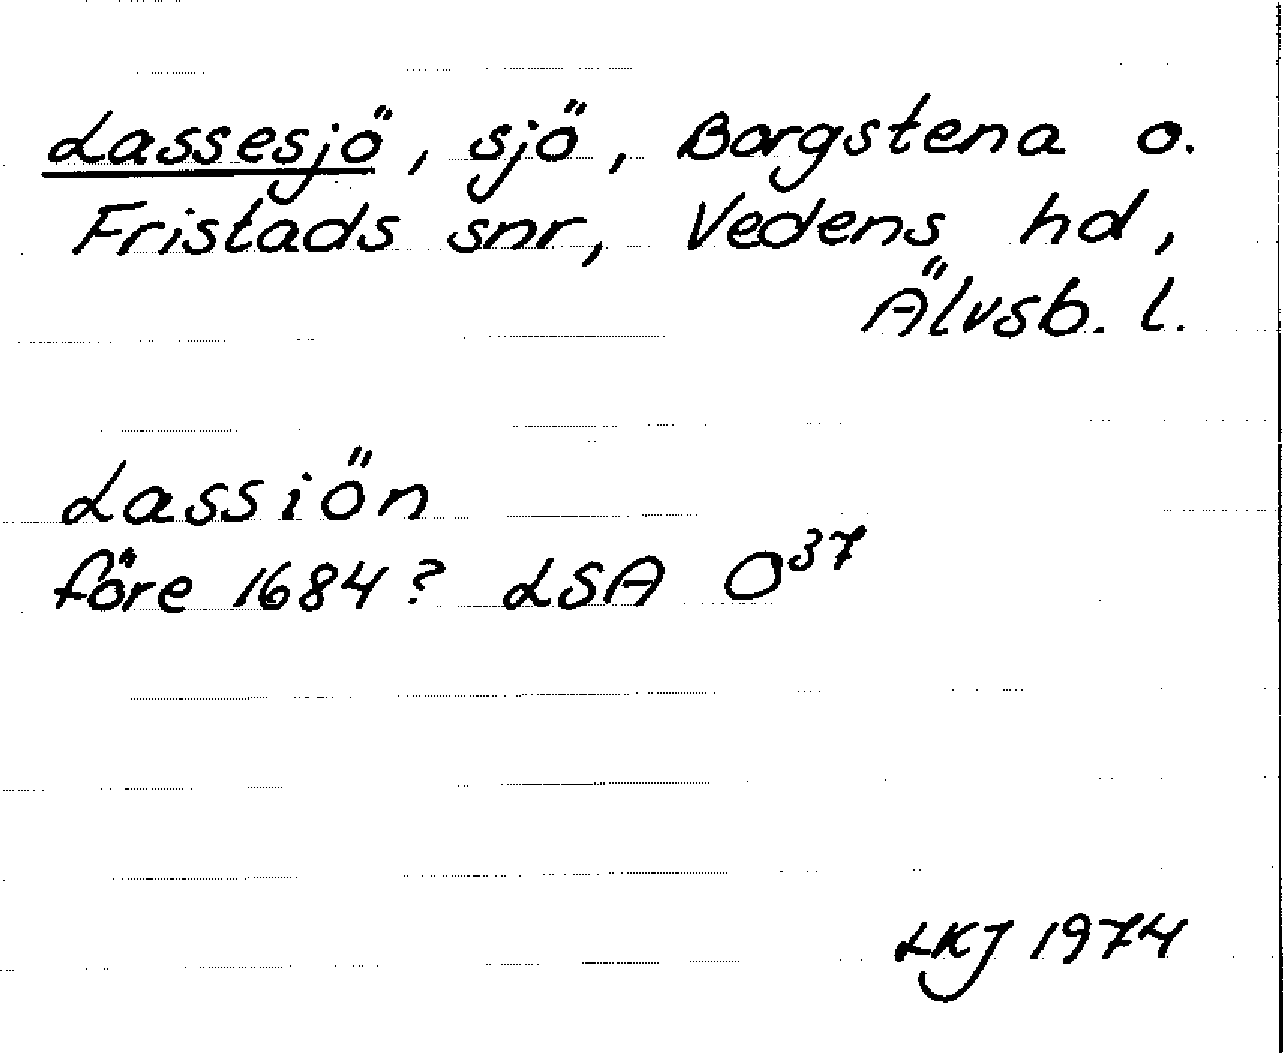 Lassesjö, sjö, Borgstena o.
Fristads snr, Vedens hd,
Älvsb. l.
Lassiön
före 1684? LSA O³⁷
LKJ 1974